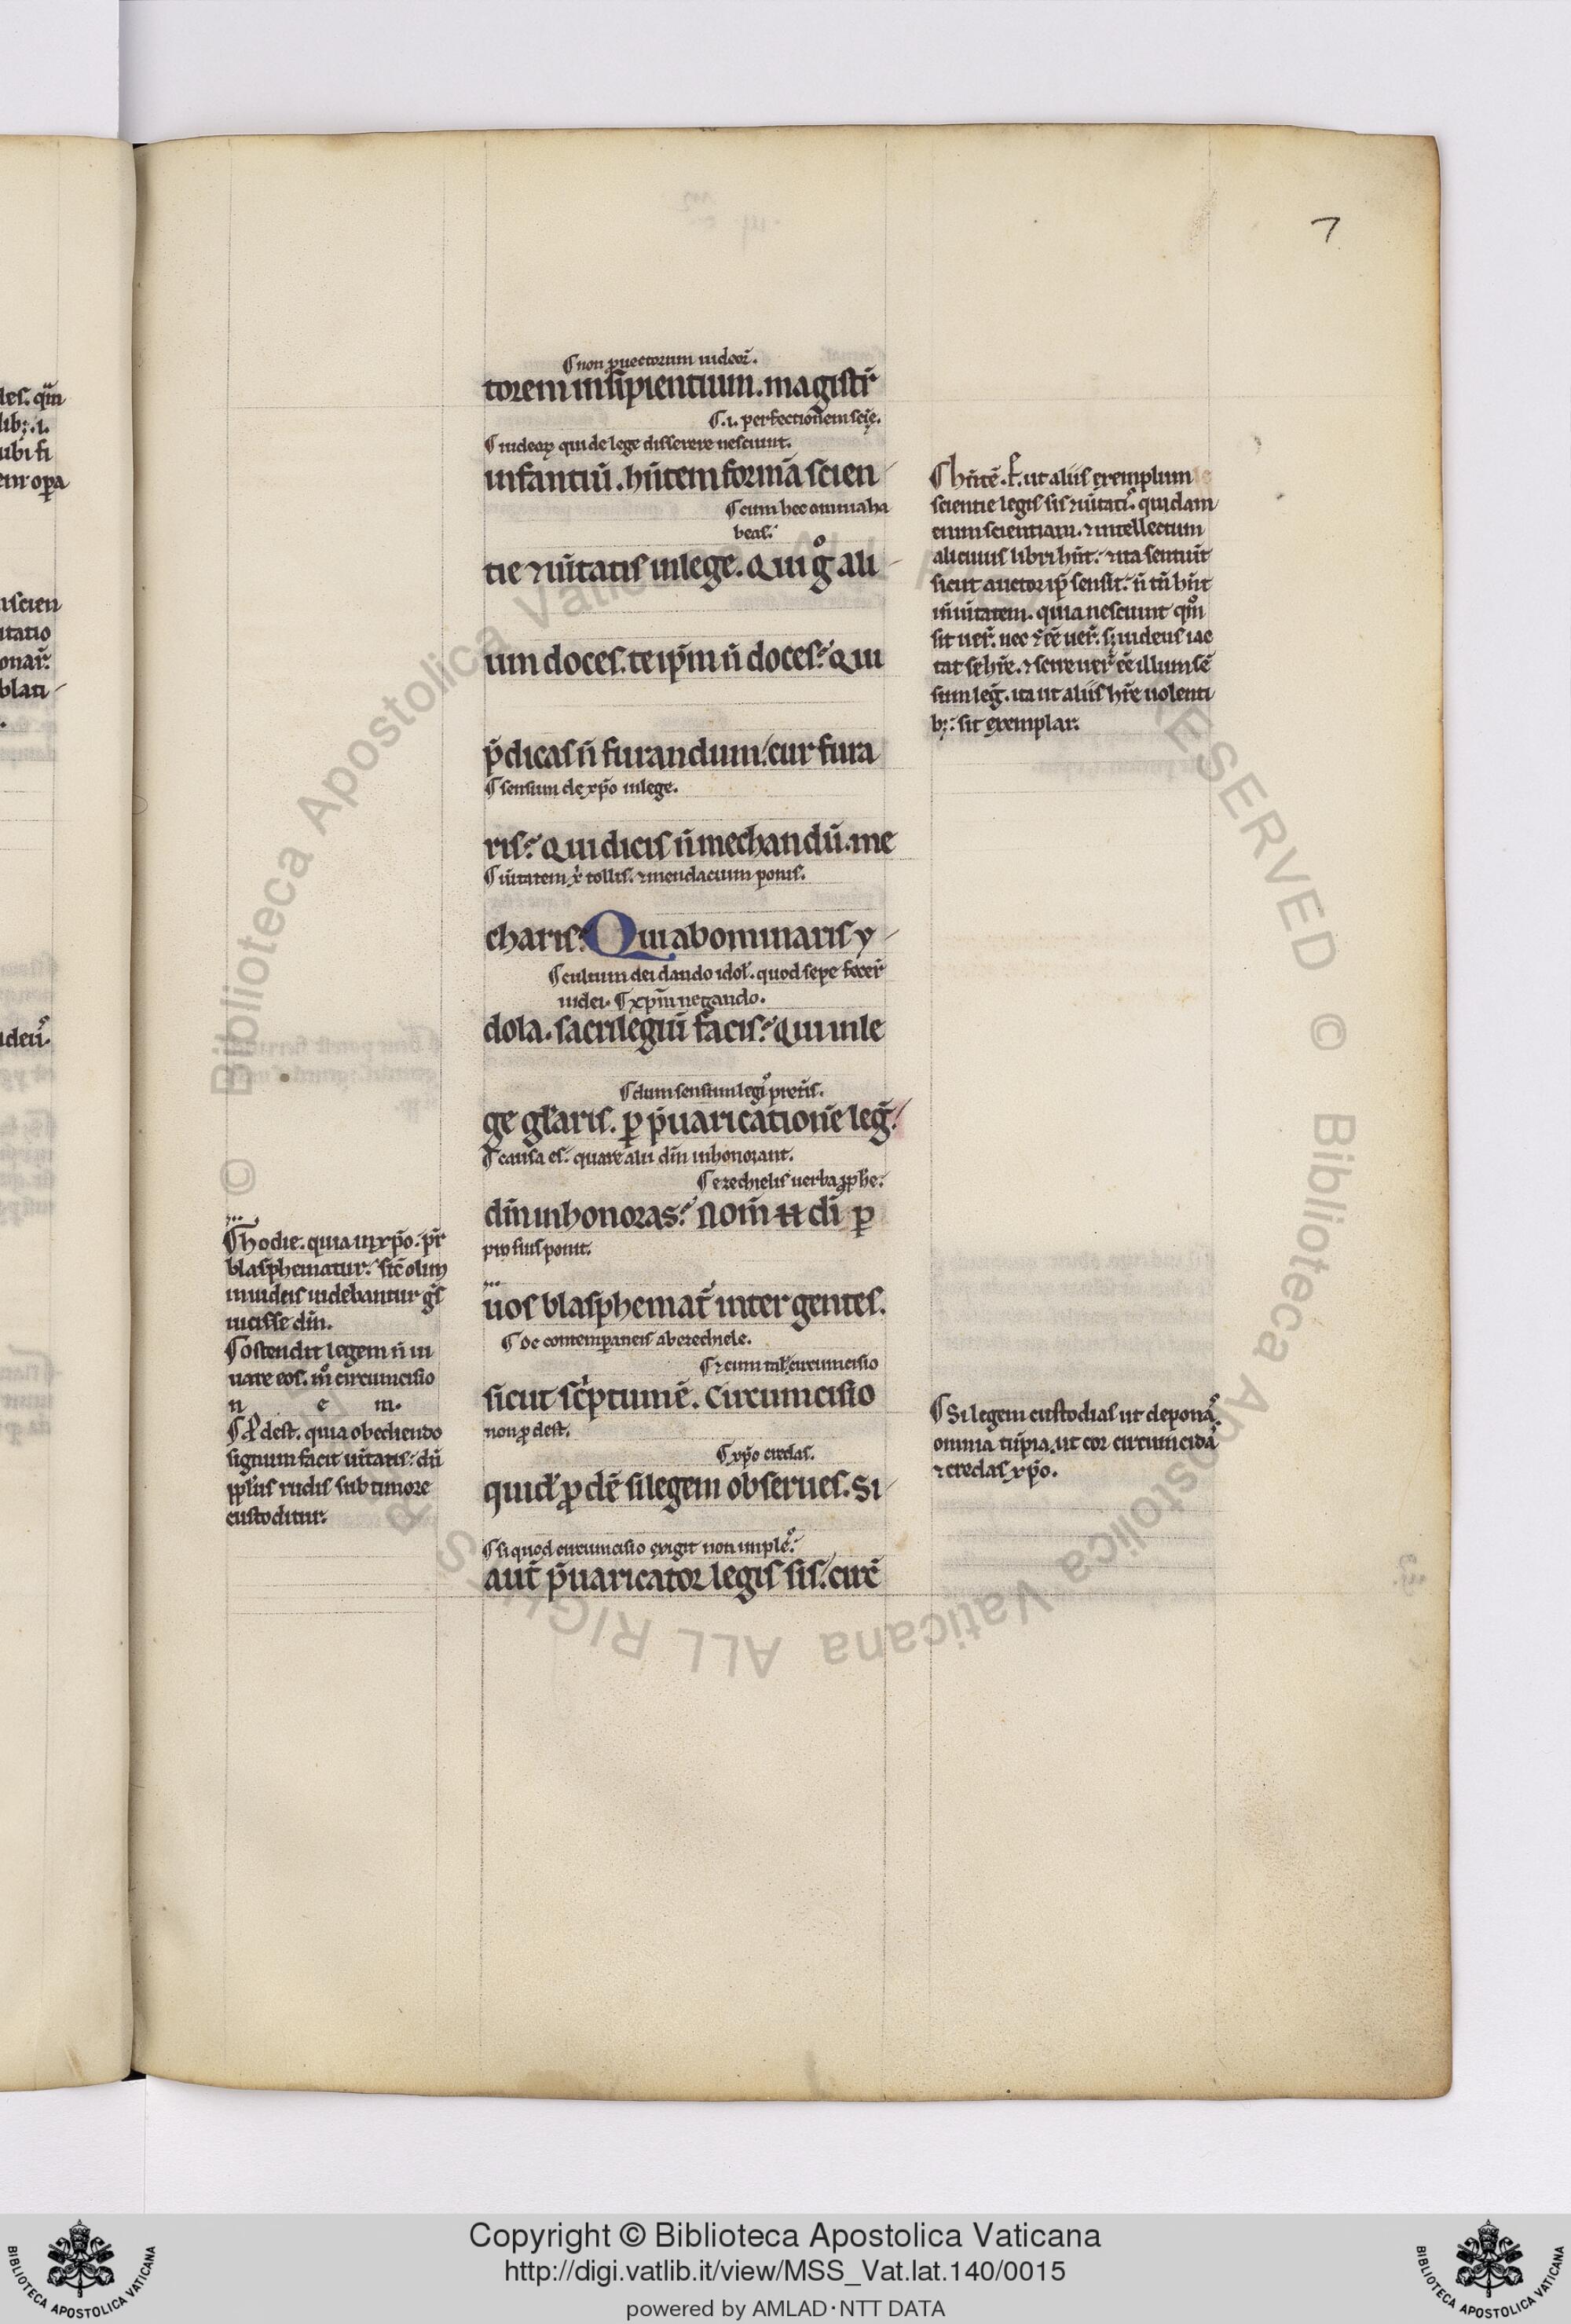 7
¶ non ꝓuectorum iudeoꝝ.
torem insipientium. magistr̃
¶ .i. perfectionem scię.
¶ iudeoꝝ qui de lege disserere nesciunt.
infantiū. hñtem formã scien
¶ cum hec omnia ha
beas.
tie ⁊ uẽitatis in lege. Qui gͦ ali
um doces. te ip̃m ñ doces? Qui
p̃dicas ñ furandum. cur fura
¶ sensum de xp̃o in lege.
ris? Qui dicis ñ mechandũ. me
¶ uẽitatem xp̃i tollis. ⁊ mendacium ponis.
charis? Qui abominaris y
¶ cultum dei dando idoł. quod sepe fecer̃
iudei. ¶ xp̃m negando.
dola. sacrilegiũ facis? Qui in le
¶ dum sensum legis p̃teris.
ge gl̃aris. ꝑ p̃uaricationẽ leg̃.
¶ causa es. quare alii dm̃ inhonorant.
¶ ezechielis uerba ꝓphe.
dm̃ inhonoras? Nom̃ .n. di ꝑ
ꝓ suis ponit.
uos blasphemat᷑ inter gentes.
¶ De contemporaneis ab ezechiele.
¶ ⁊ cum tał circumcisio
sicut scͥptum ẽ. Circumcisio
non ꝓdest.
¶ xp̃o credas.
quid̃ ꝓdẽ si legem obserues. Si
¶ si quod circumcisio exigit non imples.
aut̃ p̃uaricator legis sis. circ̃
¶ hñtẽ. f. ut aliis exemplum
scientie legis sis ⁊ uẽitatis. quidam
enim scientiam. ⁊ intellectum
alicuius libri hñt. ⁊ ita sentiũt
sicut auctor ip̃e sensit. ñ tñ hñt
uẽitatem. quia nesciunt qm̃
sit uer̃. uel ẽẽ uer̃. sꝫ iudeus iac
tat se hr̃e. ⁊ scire uer̃ ẽẽ illum sẽ
sum leg̃. ita ut aliis hr̃e uolenti
bꝫ. sit exemplar.
¶ hodie. quia in xp̃o. pr̃
blasphematur. sic̃ olim
in iudeis uidebantur g̃s
uicisse dm̃.
¶ Ostendit legem ñ iu
uare eos. m̊ circumcisio
n e m.
¶ Ꝓdest. quia obediendo
signum facit uẽitatis. dũ
pp̃lus rudis sub timore
custoditur.
¶ Si legem custodias ut deponas
omnia turpia. ut cor circumcidas
⁊ credas xp̃o.
Copyright © Biblioteca Apostolica Vaticana
http://digi.vatlib.it/view/MSS_Vat.lat.140/0015
powered by AMLAD·NTT DATA